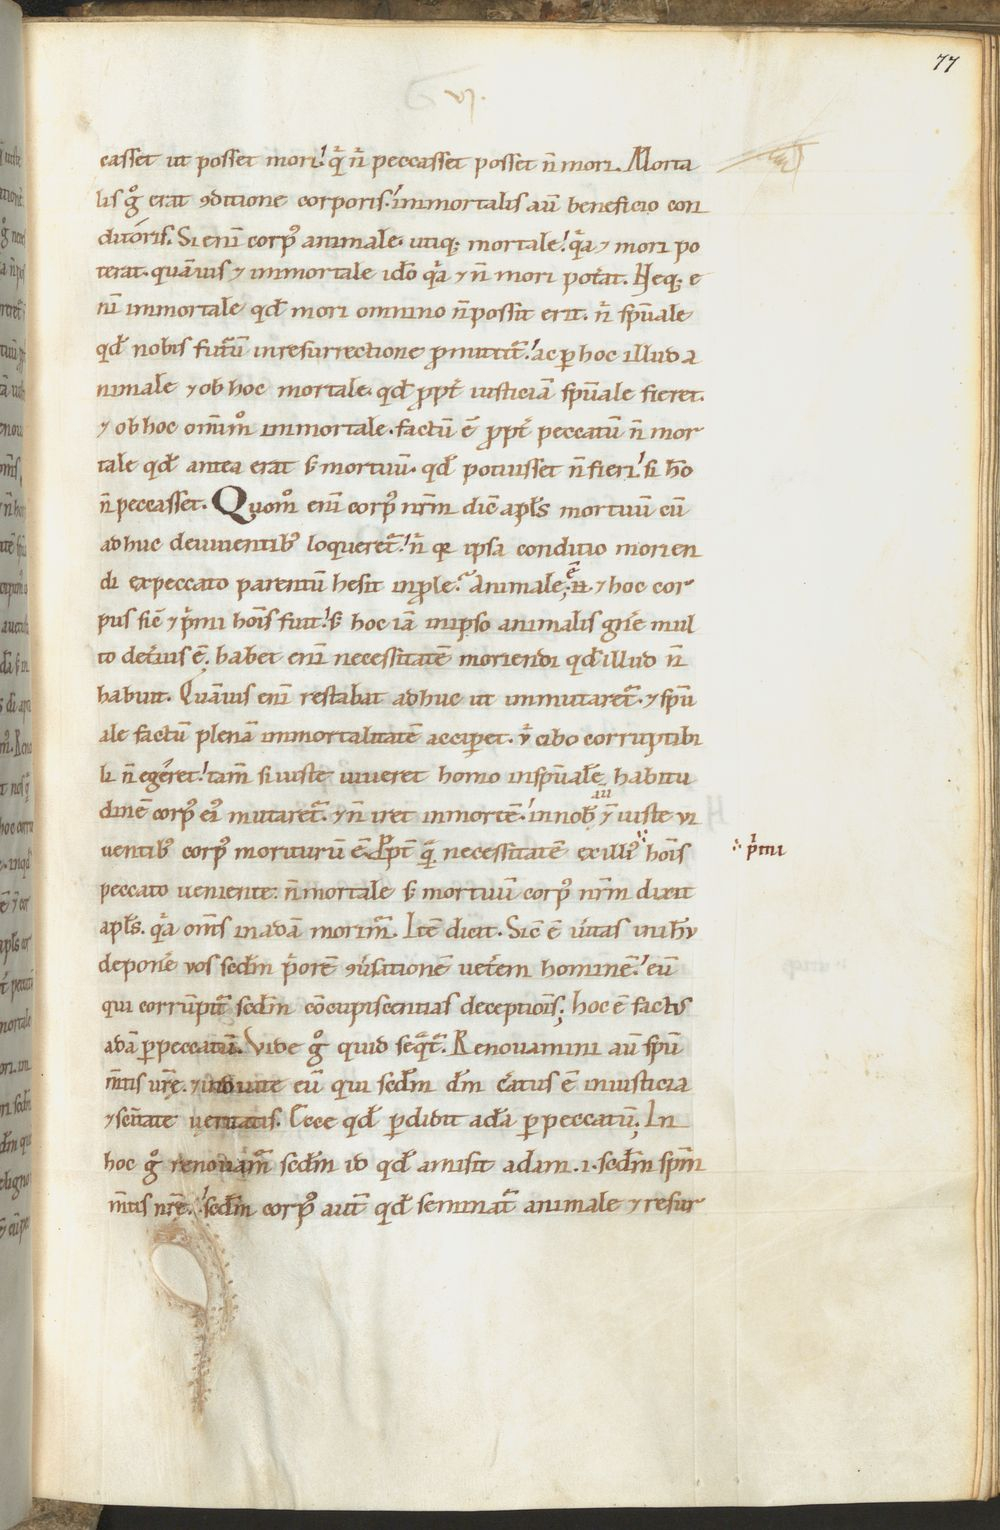 77
G vi.
casset ut posset mori! q̇ n̄ peccasset posset n̄ mori. Morta
lis g̊ erat ꝯditione corporis! immortalis aū beneficio con
ditóris. Si eni̅ corpꝰ animale. utiq; mortale! q̇a ⁊ mori po
terat. quāuis ⁊ immortale id̅o q̇a ⁊ n̄ mori pot̅at. Neq; e
ni̅ immortale qd̅ mori omnino n̄ possit erit. n̄ sp̅uale
qd̅ nobis futu̅r in resurrectione p̅mittit᷑! ac ꝑ hoc illud a
nimale ⁊ ob hoc mortale. qd̅ ꝓpt̅ iusticia̅ sp̅uale fieret.
⁊ ob hoc om̅imo̊ immortale. factu̅ e̅ ꝓpt̅ peccatu̅ n̄ mor
tale qd̅ antea erat s̅ mortuu̅. qd̅ potuisset n̄ fieri! si ho̅
n̄ peccasset. Quom̊ eni̅ corpꝰ nr̅m dic̅ apl̅s mortuu̅ cu̅
adhuc de uiuentibꝰ loqueret᷑! n̄ qꝛ ipsa conditio morien
di ex peccato parentu̅ hesit in ꝓle. Animale; e̅ n̅. ⁊ hoc cor
pus sic̅ ⁊ p̅mi ho̅is fuit! s̅ hoc ia̅ in ipso animalis gn̅e mul
to det̅ius e̅. habet eni̅ necessitate̅ moriendi qd̅ illud n̄
habuit. Qua̅uis eni̅ restabat adhuc ut immutaret᷑. ⁊ sp̅u
ale factu̅ plena̅ immortalitate̅ acciperet. ut̅ cibo corruptibi
li n̄ eg̅eret! tam̅ si iuste uiueret homo in sp̅uale̅ habitu
dine̅ corpꝰ ei ꝰ mutaret᷑. ⁊ n̄ iret in morte̅! in nob̅ au ⁊̅ iuste ui
uentibꝰ corpꝰ moriturū e̅. Ꝓpt̅ q̅ necessitate̅ ex illiꝰ ho̅is
p̅mi
peccato ueniente: n̄ mortale s̅ mortuu̅ corpꝰ nr̅m dixit
apl̅s. q̇a om̅s in ada̅ morim᷑. Ite̅ dicit. Sic̅ e̅ u̅itas in ih̅u
depone̅ uos sed̅m p̅ore̅ ꝯu̅sitione̅ uet̅em homine̅! eu̅
qui corru̅pit᷑ sed̅m co̅cupiscentias deceptio̅is; hoc e̅ factꝰ
ada̅ ꝑ peccatu̅. Vide g̊ quid seq̅t᷑. Renouamini au̅ sp̅u
m̅tis ur̅e. ⁊ induite eu̅ qui sed̅m d̅m c̅atus e̅ in iusticia
⁊ sc̅itate ueritatis. Ecce qd̅ ꝑdidit ada̅ ꝑ peccatu̅; In
hoc g̊ renouam᷑ sed̅m id qd̅ amisit adam. i. sed̅m sp̅m
m̅tis nr̅e! sed̅m corpꝰ aut̅ qd̅ seminat᷑ animale ⁊ resur